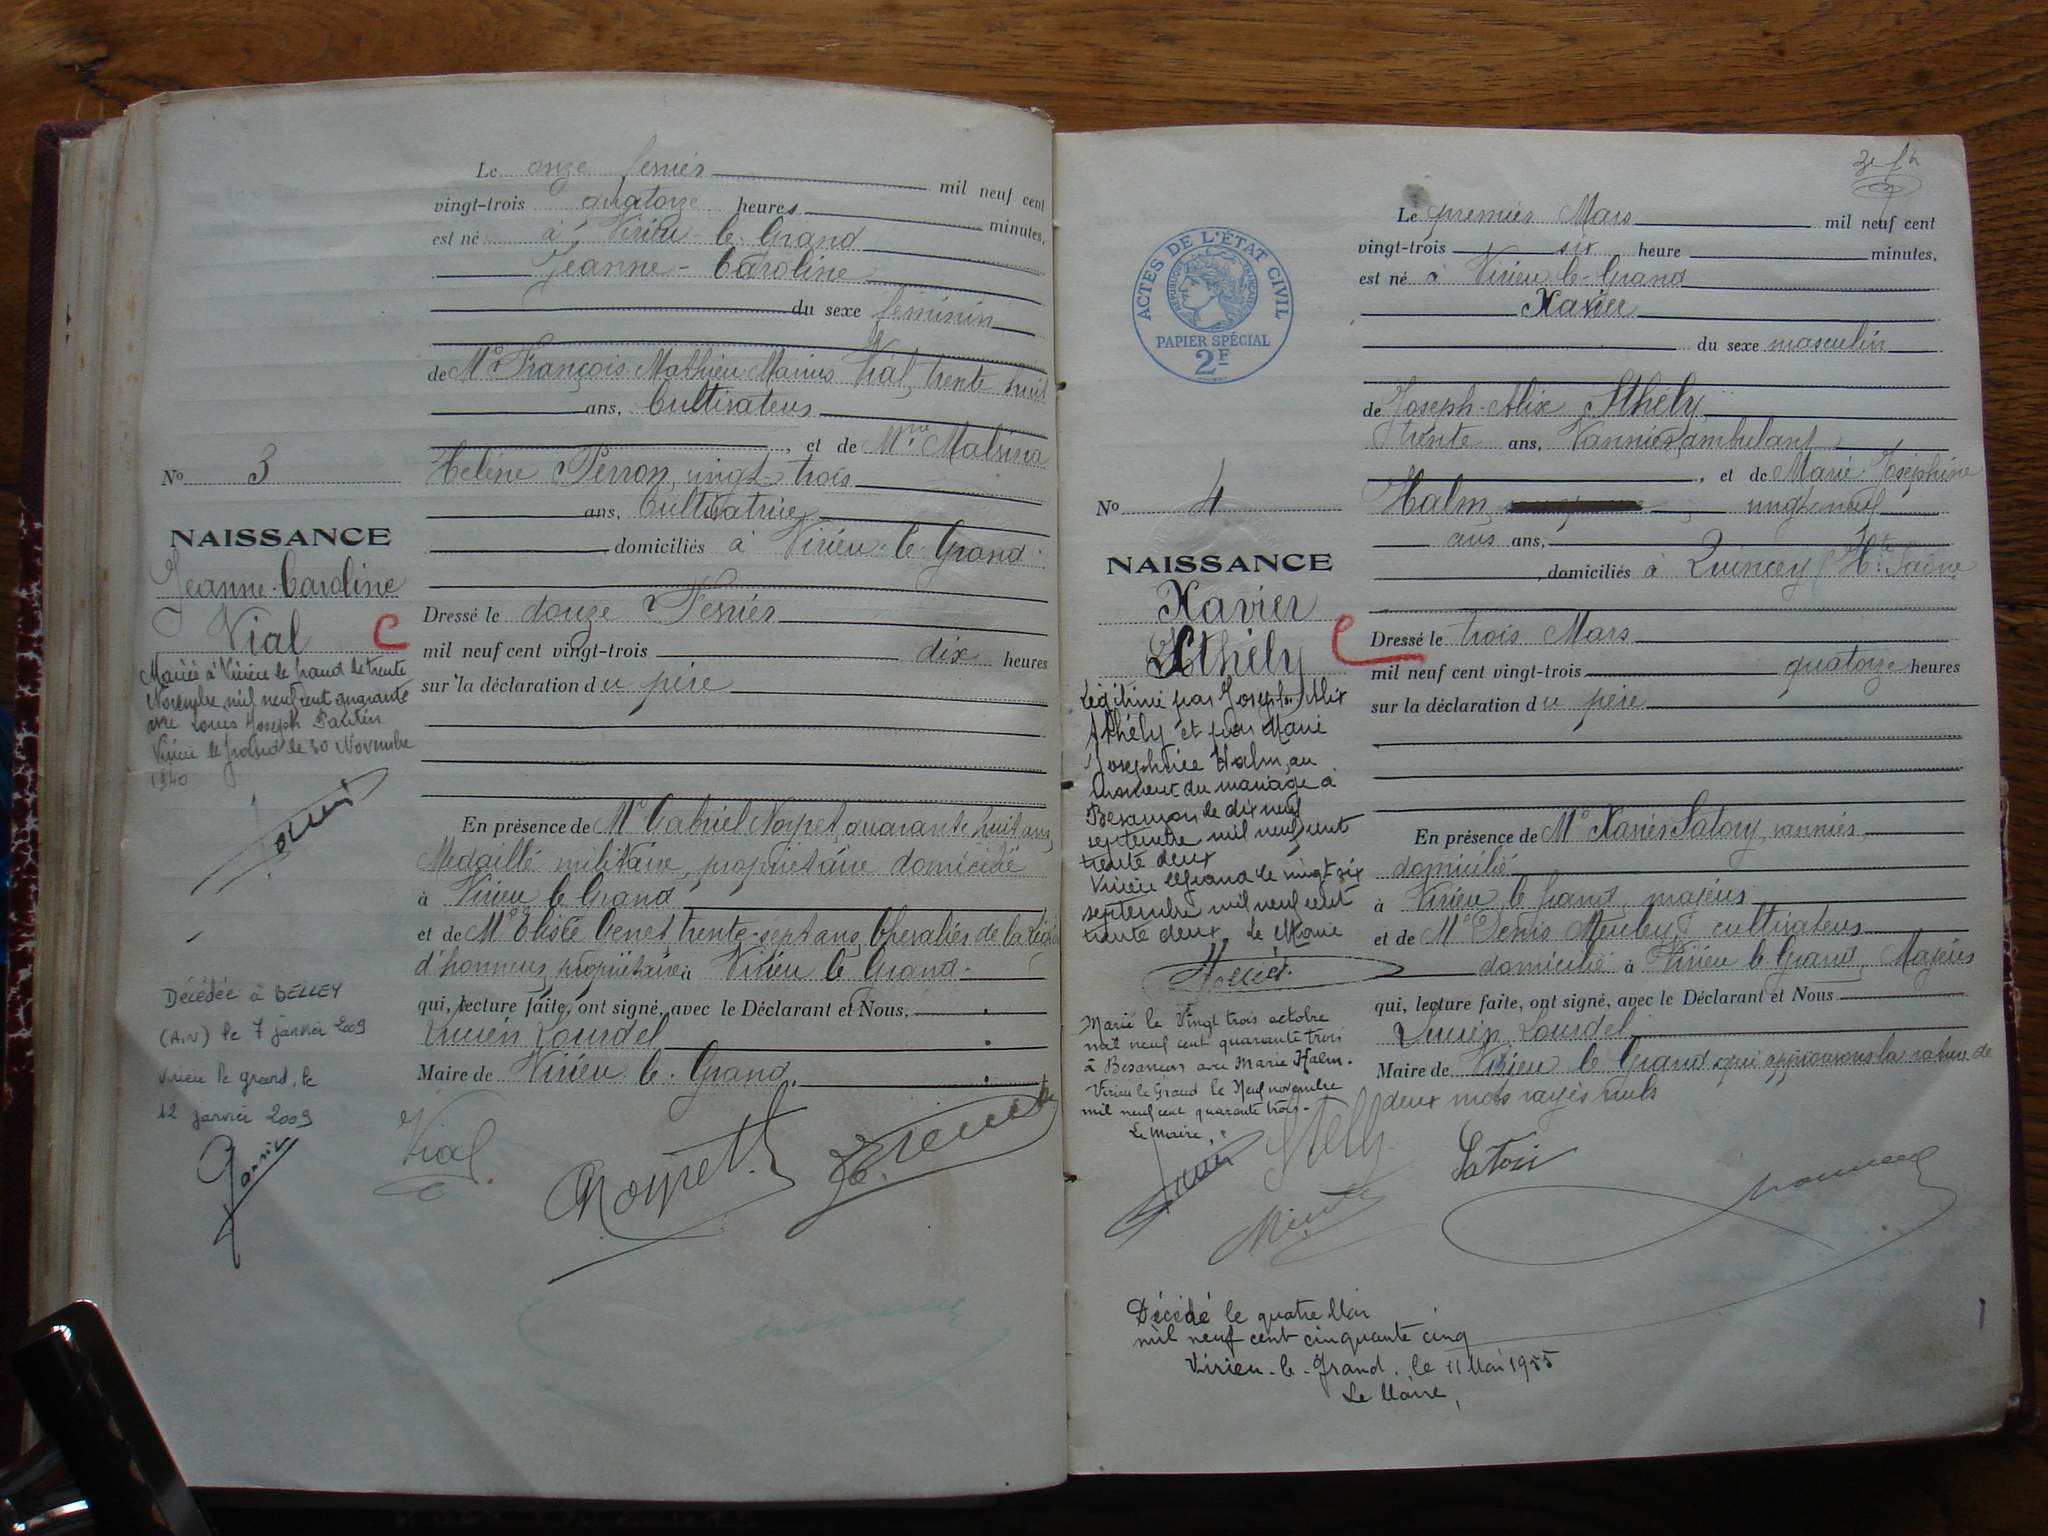 Le onze Fevrier mil neuf cent
vingt-trois quatorze heures minutes,
est né à Virieu-le-Grand
Jeanne-Caroline
du sexe féminin
de Mr François Mathieu Marius Vial, trente huit
ans, Cultivateur
, et de Mme Malvina
Hélène Perron, vingt-trois
ans, Cultivatrice
domiciliés à Virieu-le-Grand.
Dressé le douze Fevrier
mil neuf cent vingt-trois dix heures
sur la déclaration du père
En présence de Mr Gabriel Noypet, quarante huit ans,
Medaillé militaire, propriétaire domicilié
à Virieu le Grand
et de Mr Elisée Genet, trente-sept ans, Chevalier de la Légion
d'honneur, propriétaire à Virieu le Grand
qui, lecture faite, ont signé, avec le Déclarant et Nous,
Lucien Lourdel
Maire de Virieu-le-Grand.
No 3
NAISSANCE
Jeanne-Caroline
Vial C
Mariée à Virieu le Grand le trente
Novembre mil neuf cent quarante
avec Louis Joseph Pantin
Virieu le Grand le 30 Novembre
1940
Décédée à BELLEY
(Ain) le 7 janvier 2009
Virieu le grand, le
12 janvier 2009
Vial
Noypet
Genet
Le premier Mars mil neuf cent
vingt-trois six heure minutes,
est né à Virieu-le-Grand
Xavier
du sexe masculin
de Joseph-Alix Sthély
trente ans, Vannier ambulant
, et de Marie Joséphine
Halm vingt neuf
ans ans,
domiciliés à Quincey (Hte Saône
Dressé le trois Mars
mil neuf cent vingt-trois quatorze heures
sur la déclaration du père
En présence de Mr Xavier Satory, vannier
domicilié
à Virieu le Grand, majeur
et de Mr Denis Meuley, cultivateur
domicilié à Virieu le Grand, Majeur
qui, lecture faite, ont signé, avec le Déclarant et Nous
Lucien Lourdel
Maire de Virieu le Grand qui approuvons la rature de
deux mots rayés nuls
ACTES DE L'ÉTAT CIVIL
RÉPUBLIQUE FRANÇAISE
PAPIER SPÉCIAL
2F
No 4
NAISSANCE
Xavier
Sthély C
Légitimé par Joseph Alix
Sthély et par Marie
Joséphine Halm, au
moment du mariage à
Besançon le dix neuf
septembre mil neuf cent
trente deux
Virieu le Grand le vingt six
septembre mil neuf cent
trente deux, Le Maire
Marié le Vingt trois octobre
mil neuf cent quarante trois
à Besançon avec Marie Halm.
Virieu le Grand le Neuf novembre
mil neuf cent quarante trois.
Le Maire,
Stelly
Satori
Décédé le quatre Mai
mil neuf cent cinquante cinq
Virieu-le-Grand, le 11 Mai 1955
Le Maire,